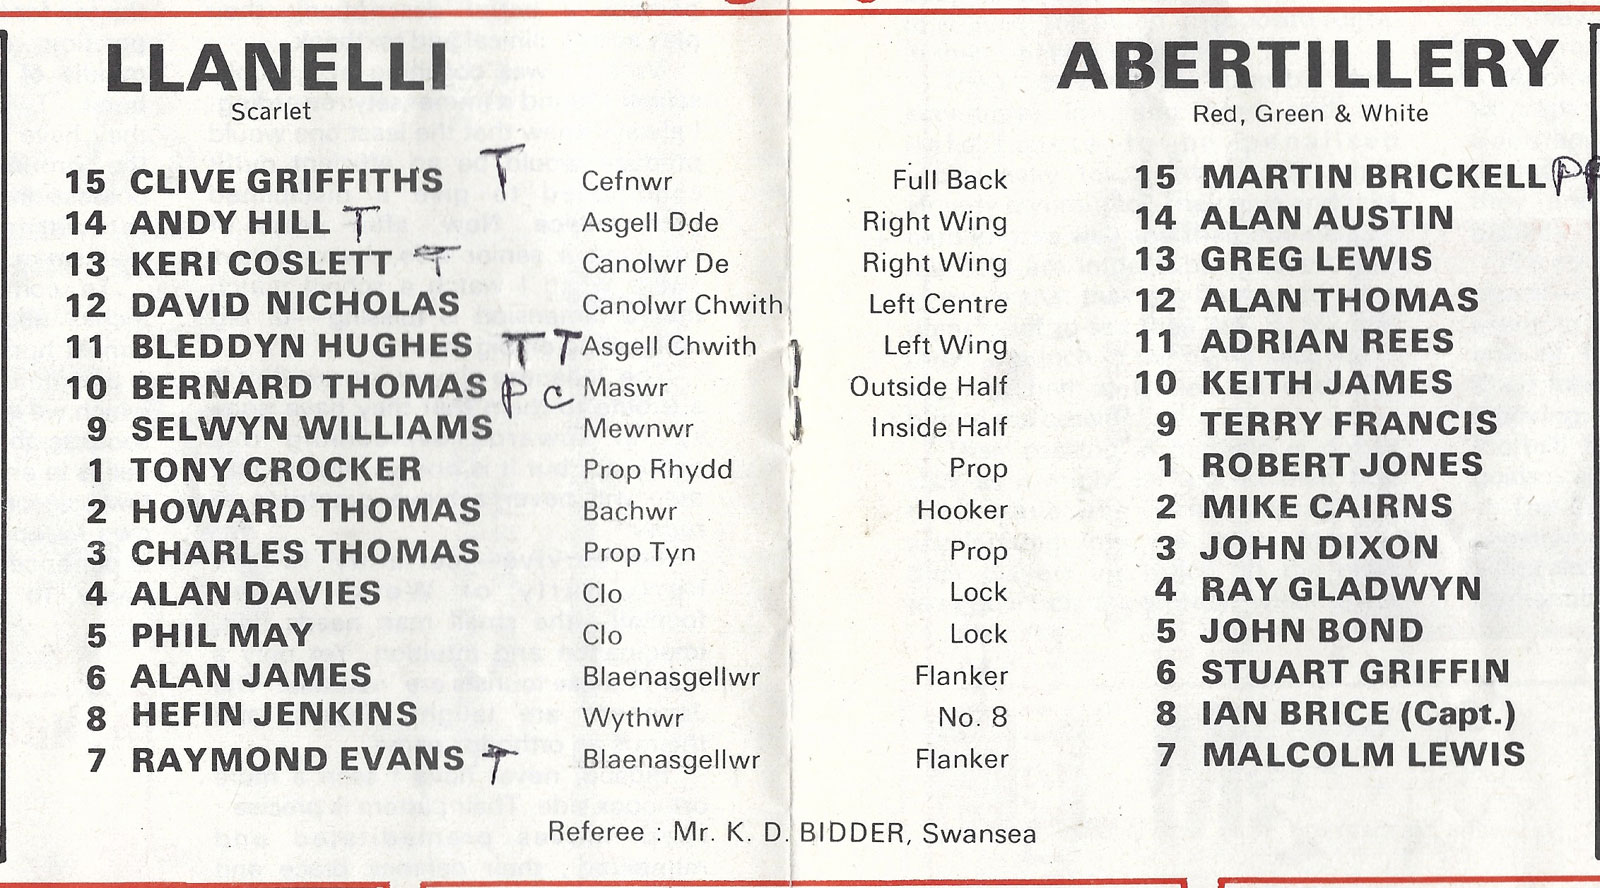 LLANELLI ABERTILLERY
Scarlet Red, Green & White
15 CLIVE GRIFFITHS T Cefnwr Full Back 15 MARTIN BRICKELL P P
14 ANDY HILL T Asgell Dde Right Wing 14 ALAN AUSTIN
13 KERI COSLETT T Canolwr De Right Wing 13 GREG LEWIS
12 DAVID NICHOLAS Canolwr Chwith Left Centre 12 ALAN THOMAS
11 BLEDDYN HUGHES T T Asgell Chwith Left Wing 11 ADRIAN REES
10 BERNARD THOMAS P C Maswr Outside Half 10 KEITH JAMES
9 SELWYN WILLIAMS Mewnwr Inside Half 9 TERRY FRANCIS
1 TONY CROCKER Prop Rhydd Prop 1 ROBERT JONES
2 HOWARD THOMAS Bachwr Hooker 2 MIKE CAIRNS
3 CHARLES THOMAS Prop Tyn Prop 3 JOHN DIXON
4 ALAN DAVIES Clo Lock 4 RAY GLADWYN
5 PHIL MAY Clo Lock 5 JOHN BOND
6 ALAN JAMES Blaenasgellwr Flanker 6 STUART GRIFFIN
8 HEFIN JENKINS Wythwr No. 8 8 IAN BRICE (Capt.)
7 RAYMOND EVANS T Blaenasgellwr Flanker 7 MALCOLM LEWIS
Referee : Mr. K. D. BIDDER, Swansea